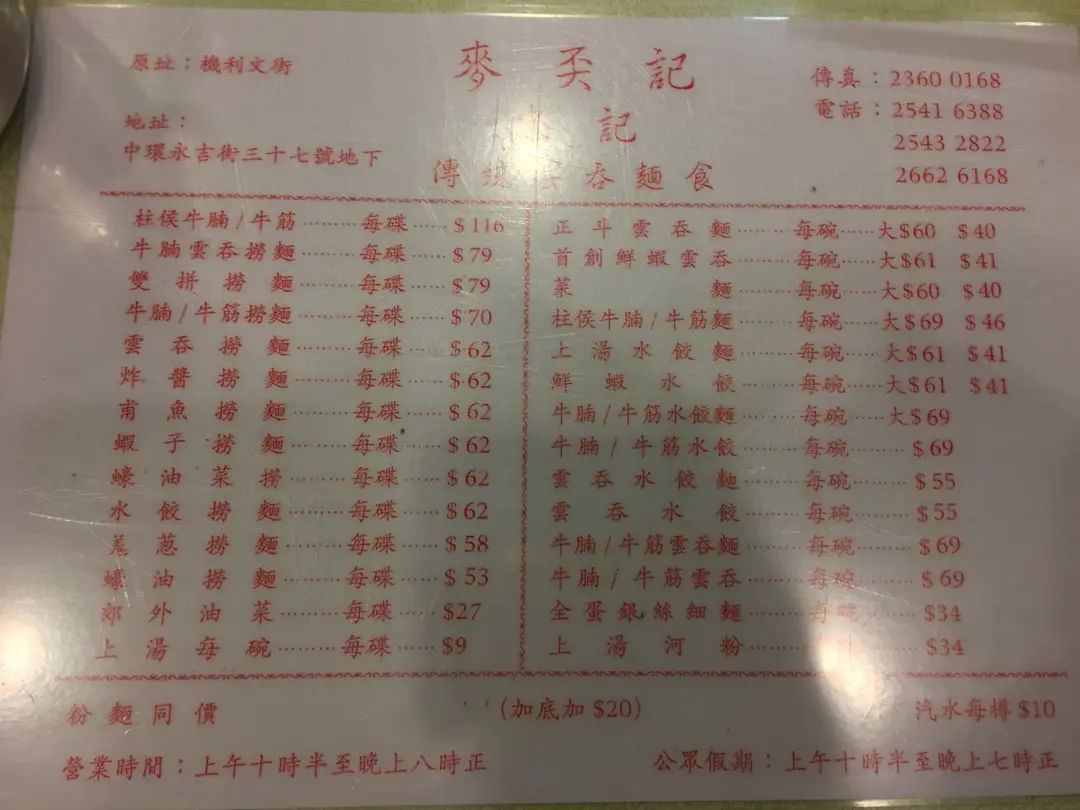 原址：機利文街
麥奀記
傳真：2360 0168
電話：2541 6388
2543 2822
2662 6168
地址：
中環永吉街三十七號地下
記
傳統雲吞麵食
柱侯牛腩/牛筋………每碟……$116
牛腩雲吞撈麵………每碟……$79
雙拼撈麵………每碟……$79
牛腩/牛筋撈麵………每碟……$70
雲吞撈麵………每碟……$62
炸醬撈麵………每碟……$62
甫魚撈麵………每碟……$62
蝦子撈麵………每碟……$62
蠔油菜撈………每碟……$62
水餃撈麵………每碟……$62
羗葱撈麵………每碟……$58
蠔油撈麵………每碟……$53
郊外油菜………每碟……$27
上湯每碗………每碟……$9
正斗雲吞麵………每碗……大$60 $40
首創鮮蝦雲吞………每碗……大$61 $41
菜麵………每碗……大$60 $40
柱侯牛腩/牛筋麵………每碗……大$69 $46
上湯水餃麵………每碗……大$61 $41
鮮蝦水餃………每碗……大$61 $41
牛腩/牛筋水餃麵………每碗……大$69
牛腩/牛筋水餃………每碗………$69
雲吞水餃麵………每碗………$55
雲吞水餃………每碗………$55
牛腩/牛筋雲吞麵………每碗………$69
牛腩/牛筋雲吞………每碗………$69
全蛋銀絲細麵………每碗………$34
上湯河粉………$34
粉麵同價
(加底加 $20)
汽水每樽 $10
營業時間：上午十時半至晚上八時正
公眾假期：上午十時半至晚上七時正